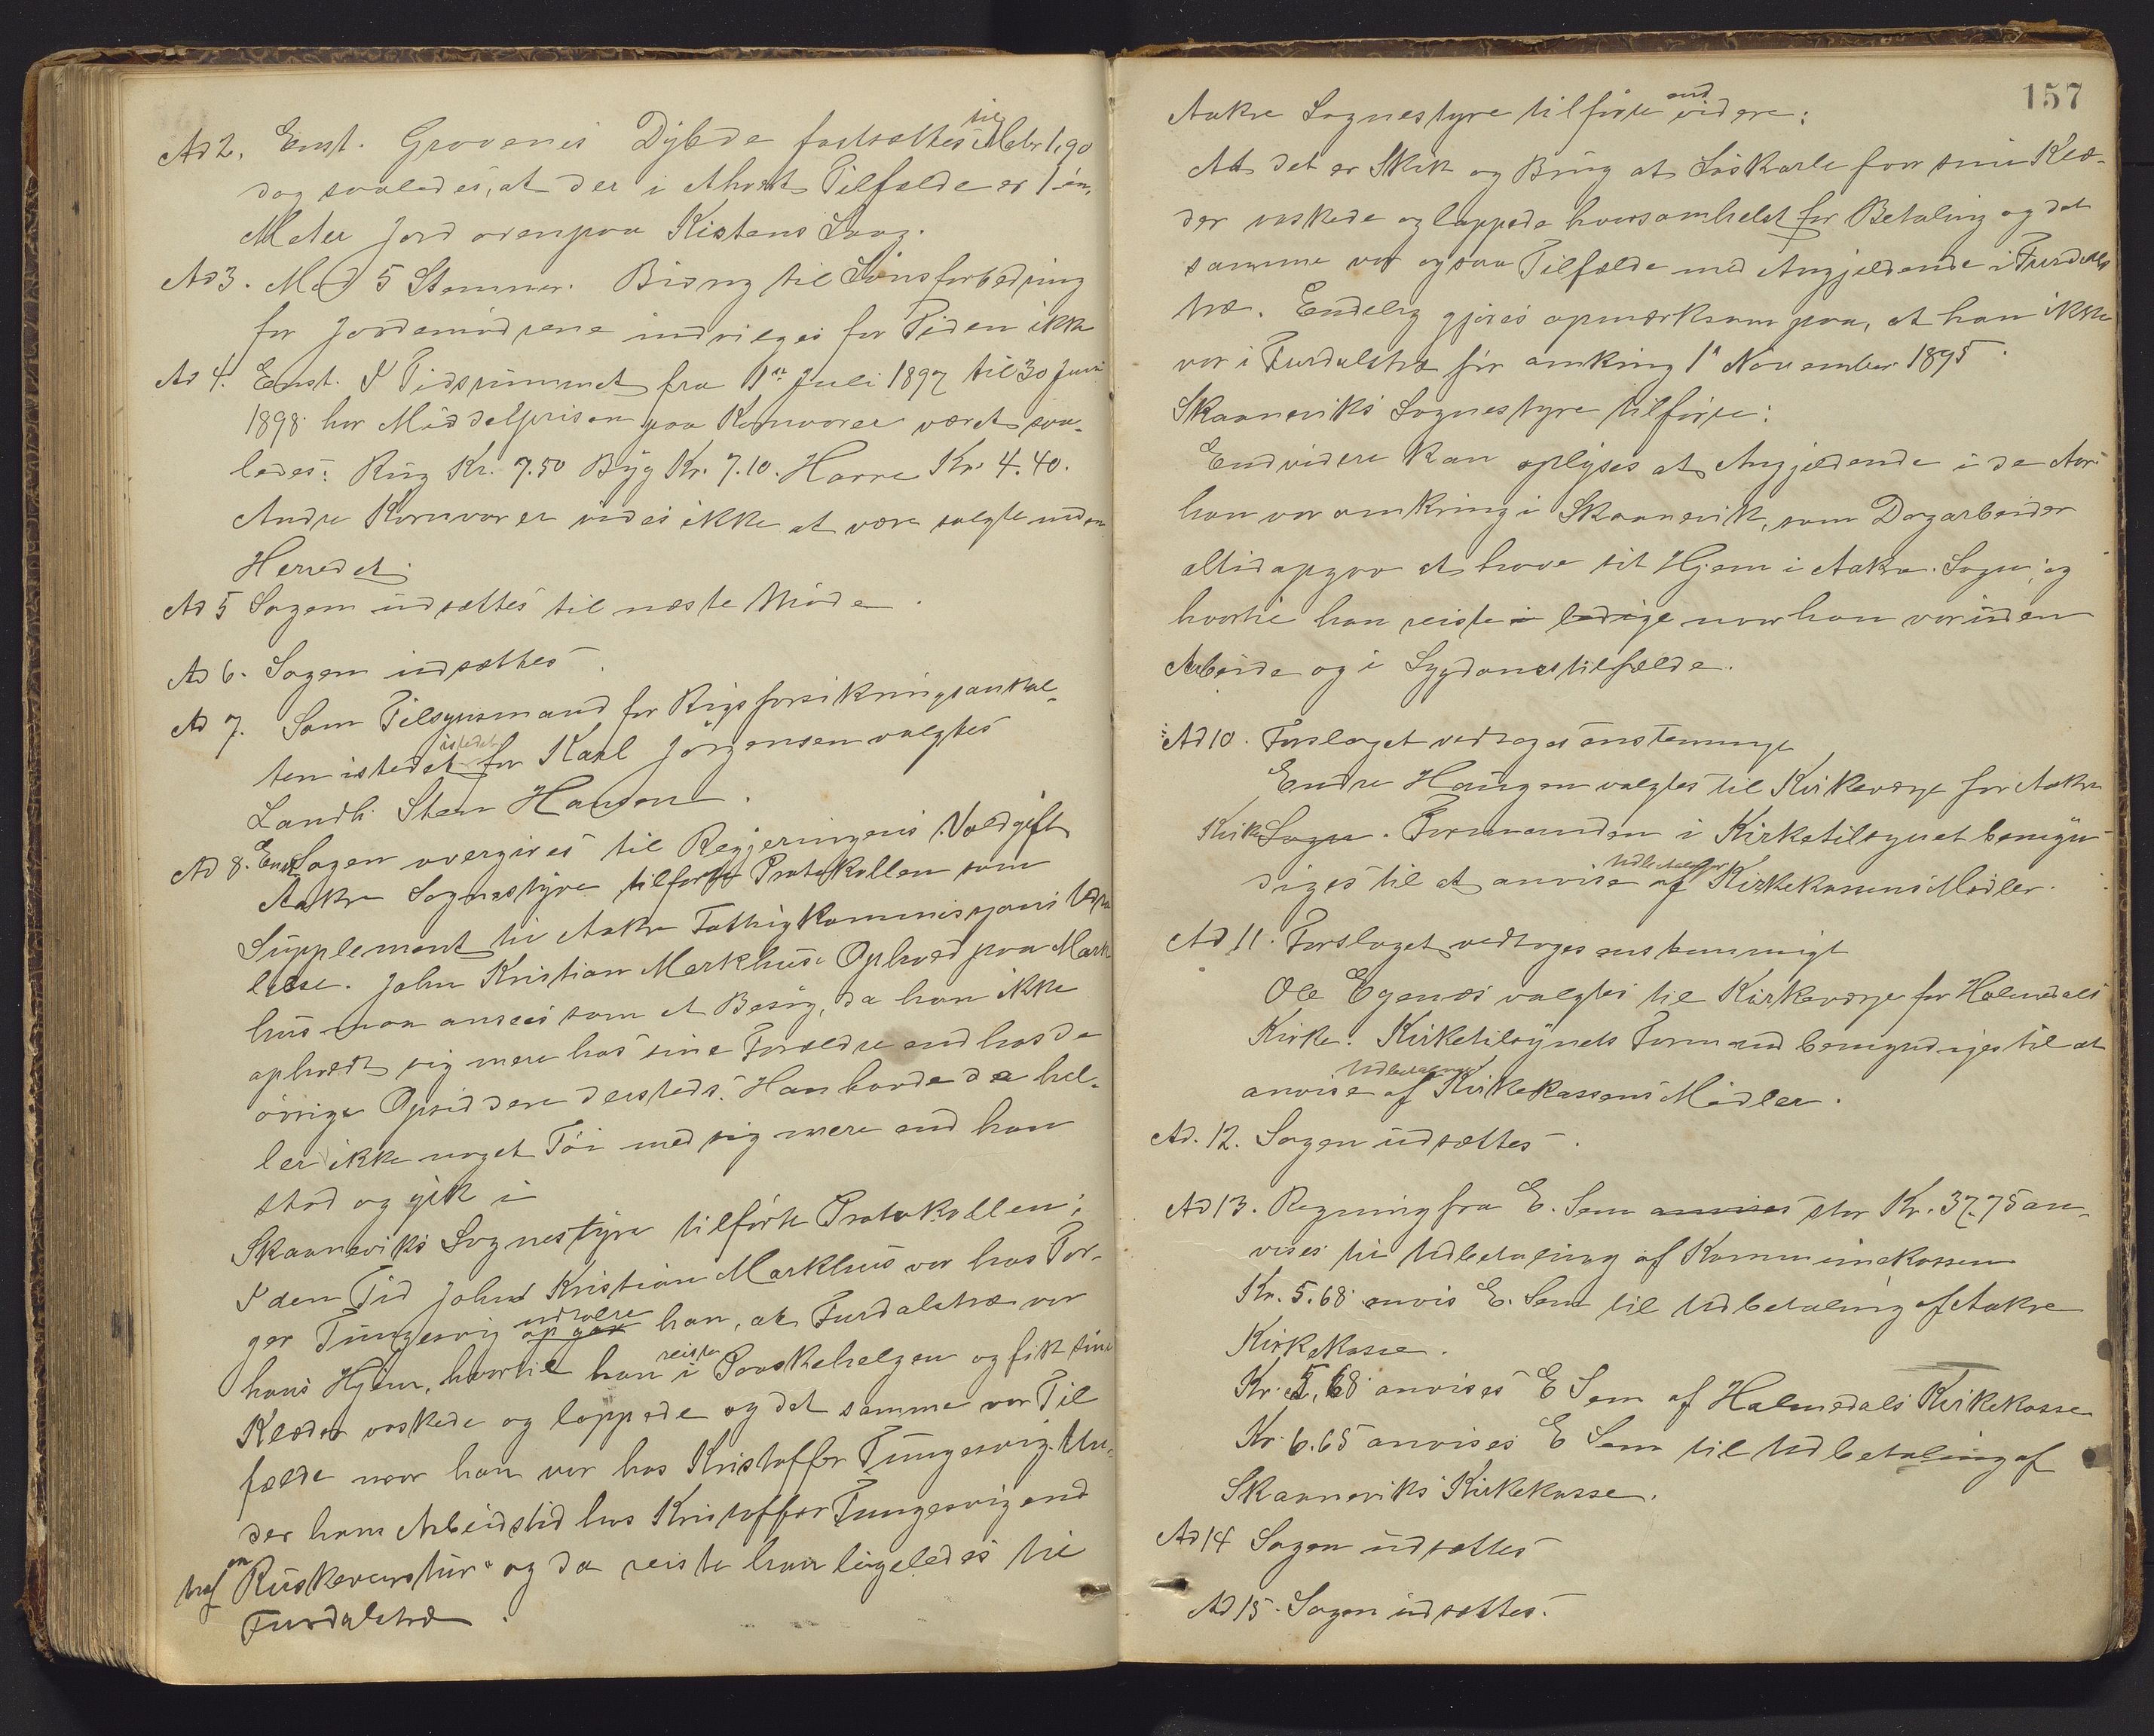 Ad 2. Enst. Gravenes Dybde fastsættes til Meter 1,90
dog saaledes, at der i ethvert Tilfælde er 1 én
Meter Jord ovenpaa Kistens Laag.
Ad 3. Med 5 Stemmer. Bidrag til Lønsforbedring
for Jordemødrene indvilges for Tiden ikke
Ad 4. Enst. I Tidsrummet fra 1ste Juli 1897 til 30 Juni
1898 har Middelprisen paa Kornvarer været saa-
ledes: Rug Kr. 7.50 Byg Kr. 7.10. Havre Kr. 4.40.
Andre Kornvarer vides ikke at være solgte inden
Herredet.
Ad 5 Sagen udsættes til næste Møde.
Ad 6. Sagen udsættes.
Ad 7. Som Tilsynsmand for Rigsforsikringsanstal-
istedet
ten istedet for Karl Jørgensen valgtes
Landh. Sten Hansen.
Ad 8. Enst. Sagen overgives til Regjeringens Voldgift
Aakre Sognestyre tilførte Protokollen som
Supplement til Aakre Fattigkommisjons Udta-
lelse. John Kristian Markhus Ophold paa Mark-
hus maa ansees som et Besøg, da han ikke
opholdt sig mere hos sine Forældre end hos de
øvrige Opsiddere dersteds. Han havde da hel-
ler ikke noget Tøi med sig mere end han
stod og gik i
Skaaneviks Sognestyre tilførte Protokollen:
I den Tid John Kristian Markhus var hos Tor-
ger Tungesvig udtalte op gav han, at Furdalstræ var
hans Hjem, hvortil han reiste i Paaskehelgen og fik sine
Klæder vaskede og lappede og det samme var Til
fælde naar han var hos Kristoffer Tungesvig. Un-
der hans Arbeidstid hos Kristoffer Tungesvig end
traf en "Ruskevarstur" og da reiste han ligeledes til
Furdalstræ.
157
Aakre Sognestyre tilførte end videre:
At det er Skik og Brug at Løskarle faar sine Klæ-
der vaskede og lappede hvorsomhelst for Betaling og det
samme var ogsaa Tilfælde med Angjeldende i Furdals
træ. Endelig gjøres opmærksom paa, at han ikke
var i Furdalstræ før omkring 1ste November 1895.
Skaaneviks Sognestyre tilførte:
Endvidere kan oplyses at Angjeldende i de Aar
han var omkring i Skaanevik, som Dagarbeider
altid opgav at have sit Hjem i Aakre Sogn, og
hvortil han reiste i ledige naar han var uden
Arbeide og i Sygdomstilfælde.
Ad 10. Forslaget vedtages enstemmigt
Endre Haugen valgtes til Kirkeværge for Aakre
Kirke Sogn. Formanden i Kirketilsynet bemyn-
diges til at anvise Udbetalinger af Kirkekassens Midler.
Ad 11. Forslaget vedtages enstemmigt
Ole Egenæs valgtes til Kirkeværge for Holmedals
Kirke. Kirketilsynets Formand bemyndiges til at
anvise Udbetalinger af Kirkekassens Midler.
Ad. 12. Sagen udsættes.
Ad 13. Regning fra E. Sem anvises stor Kr. 37.75 an-
vises til Udbetaling af Kommunekassen
Kr. 5.68 anvis E. Sem til Udbetaling af Aakre
Kirkekasse.
Kr. 5,68 anvises E Sem af Holmedals Kirkekasse
Kr. 6.65 anvises E Sem til Udbetaling af
Skaaneviks Kirkekasse.
Ad 14 Sagen udsættes
Ad 15. Sagen udsættes.